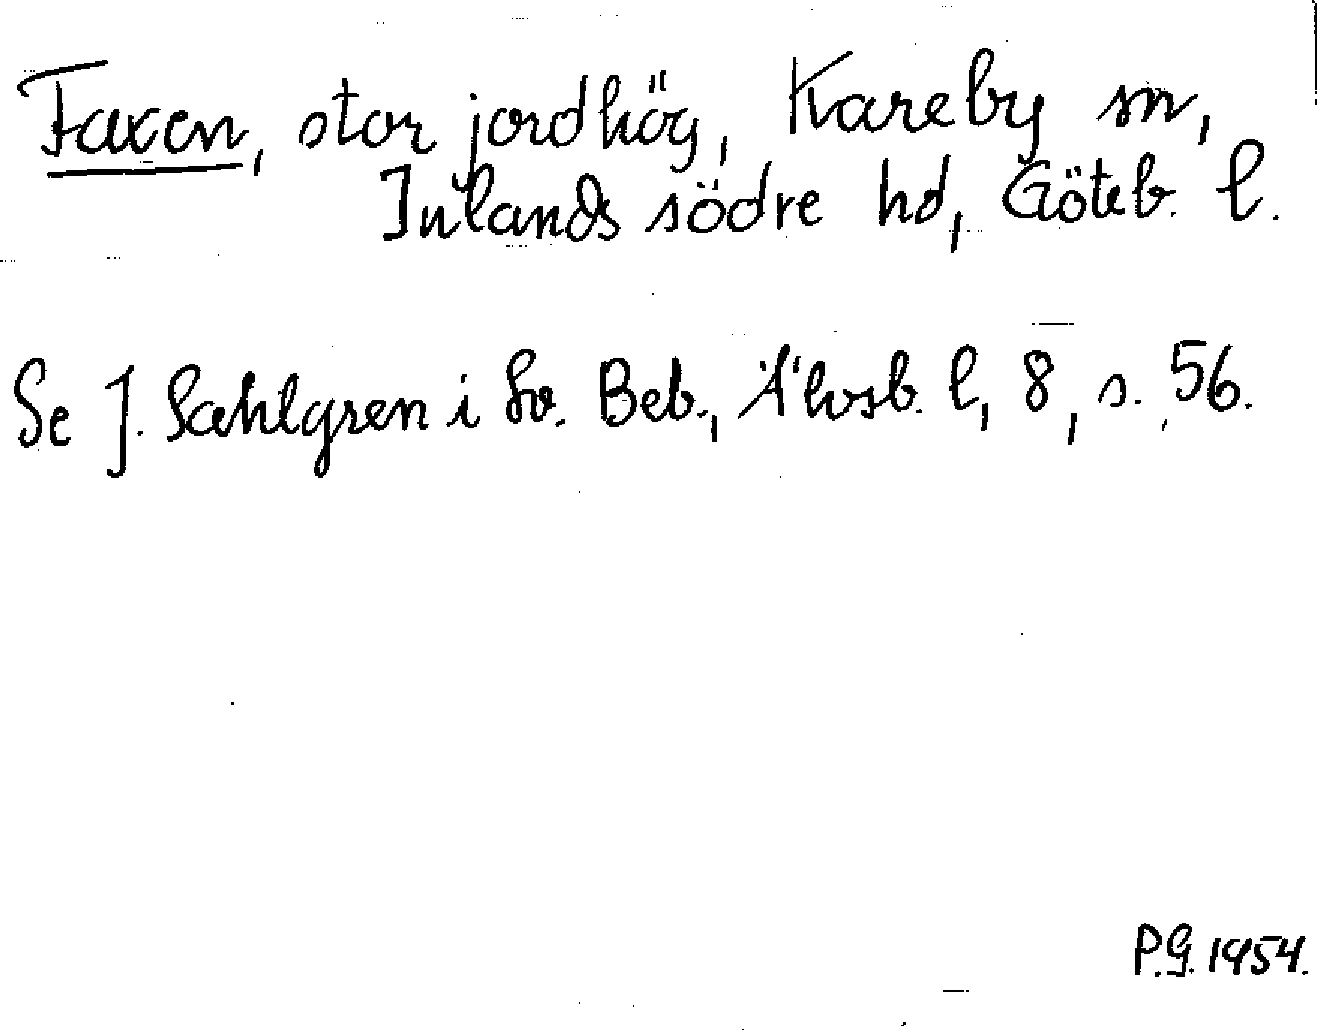 Faxen, stor jordhög, Kareby sn,
Inlands södre hd, Göteb. l.
Se J. Sahlgren i Sv. Beb., Älvsb. l, 8, s. 56.
P.G. 1954.